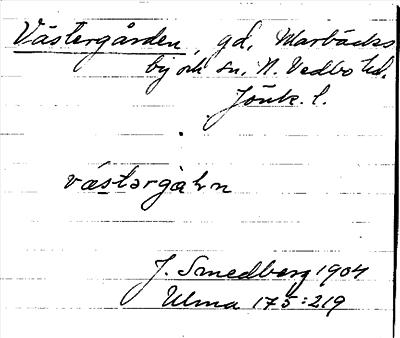 Västergården, gd, Marbäcks
by och sn, N. Vedbo hd.
Jönk. l.
västərgàhn
J. Smedberg 1904
Ulma 175:219